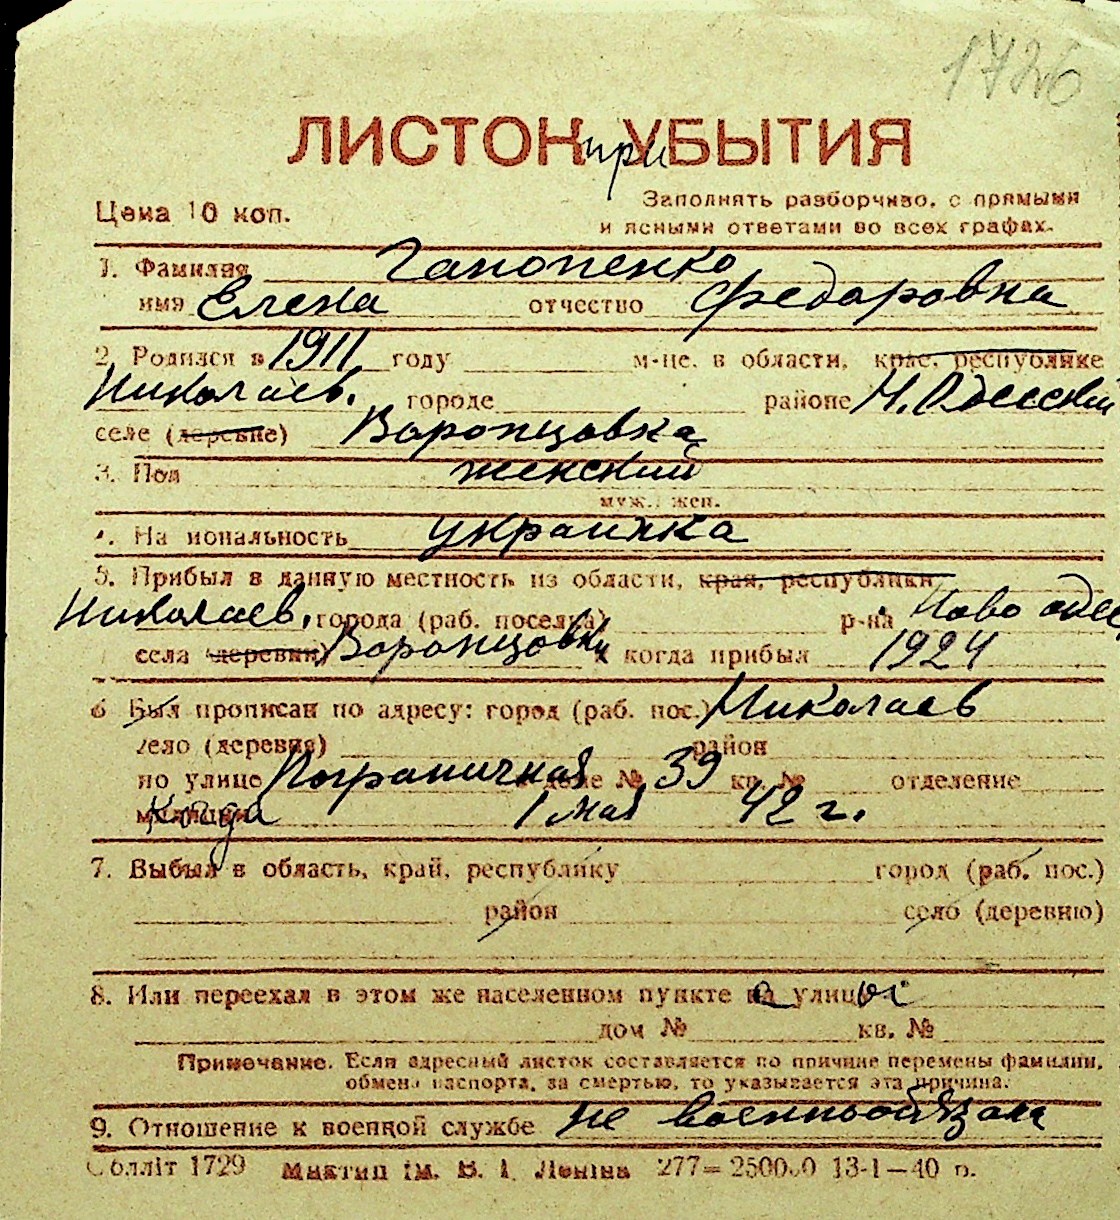 1726
ЛИСТОК при УБЫТИЯ
Цена 10 коп.
Заполнять разборчиво, с прямыми
и ясными ответами во всех графах.
1. Фамилия Гапоненко
имя Елена отчество Федоровна
2. Родился в 1911 году м-це. в области, крае, республике
Николаев. городе районе Н.Одесский
селе (деревне) Воронцовка
3. Пол женский
муж., жен.
4. На иональность украинка
5. Прибыл в данную местность из области, края, республики
Николаев. города (раб. поселка) р-на Ново одес
села (деревни) Воронцовки когда прибыл 1924
6 Был прописан по адресу: город (раб. пос.) Николаев
село (деревня) район
по улице Пограничная доме № 39 кв. № отделение
милиции Когда 1 мая 42 г.
7. Выбыл в область, край, республику город (раб. пос.)
район село (деревню)
8. Или переехал в этом же населенном пункте на улицу
дом № кв. №
Примечание. Если адресный листок составляется по причине перемены фамилии,
обмена паспорта, за смертью, то указывается эта причина.
9. Отношение к военной службе не военнообязана
Облліт 1729 Миктип ім. В. І. Леніна 277— 250000 13-1—40 р.